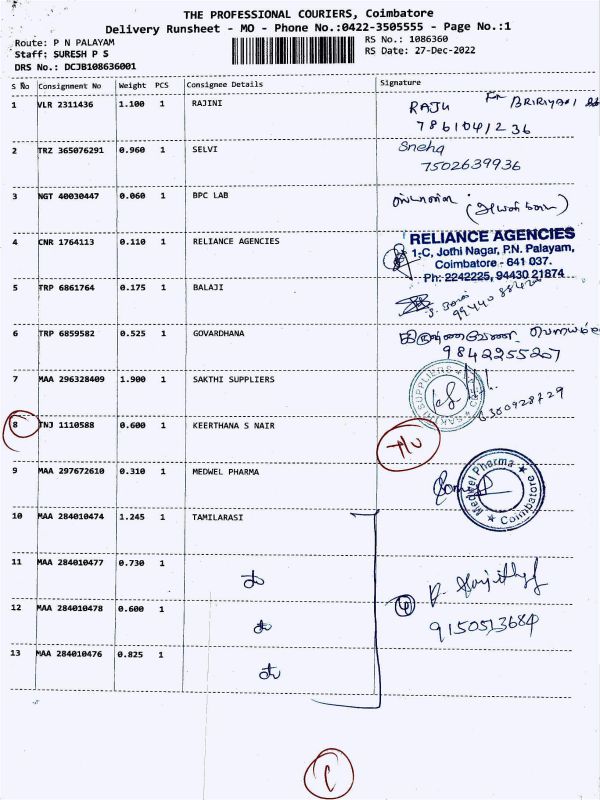 THE PROFESSIONAL COURIERS, Coimbatore
Delivery Runsheet - MO - Phone No.:0422-3505555 - Page No.:1
Route: P N PALAYAM
Staff: SURESH P S
DRS No.: DCJB108636001
RS No.: 1086360
RS Date: 27-Dec-2022
S No Consignment No Weight PCS Consignee Details Signature
1 VLR 2311436 1.100 1 RAJINI RAJU
7861041236
2 TRZ 365076291 0.960 1 SELVI Sneha
7502639936
3 NGT 40030447 0.060 1 BPC LAB
4 CNR 1764113 0.110 1 RELIANCE AGENCIES RELIANCE AGENCIES
1-C, Jothi Nagar, P.N. Palayam,
Coimbatore - 641 037.
Ph: 2242225, 94430 21874
5 TRP 6861764 0.175 1 BALAJI
6 TRP 6859582 0.525 1 GOVARDHANA
9842255207
7 MAA 296328409 1.900 1 SAKTHI SUPPLIERS SAKTHI SUPPLIERS
6300928729
8 TNJ 1110588 0.600 1 KEERTHANA S NAIR
9 MAA 297672610 0.310 1 MEDWEL PHARMA Medwel Pharma
Coimbatore
10 MAA 284010474 1.245 1 TAMILARASI
11 MAA 284010477 0.730 1
12 MAA 284010478 0.600 1
9150513684
13 MAA 284010476 0.825 1